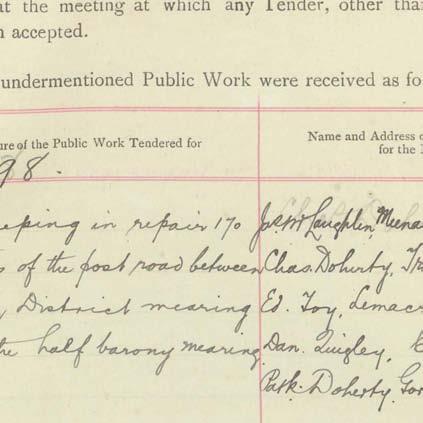 at the meeting at which any Tender, other tha
n accepted.
undermentioned Public Work were received as fo
ure of the Public Work Tendered for
Name and Address o
for the
98.
eping in repair 170
s of the post road between
District mearing
the half barony mearing
Jas McLaughlin, Meena
Chas. Doherty, Tr
Ed. Toy, Lemac
Dan. Quigley,
Patk. Doherty, Gor